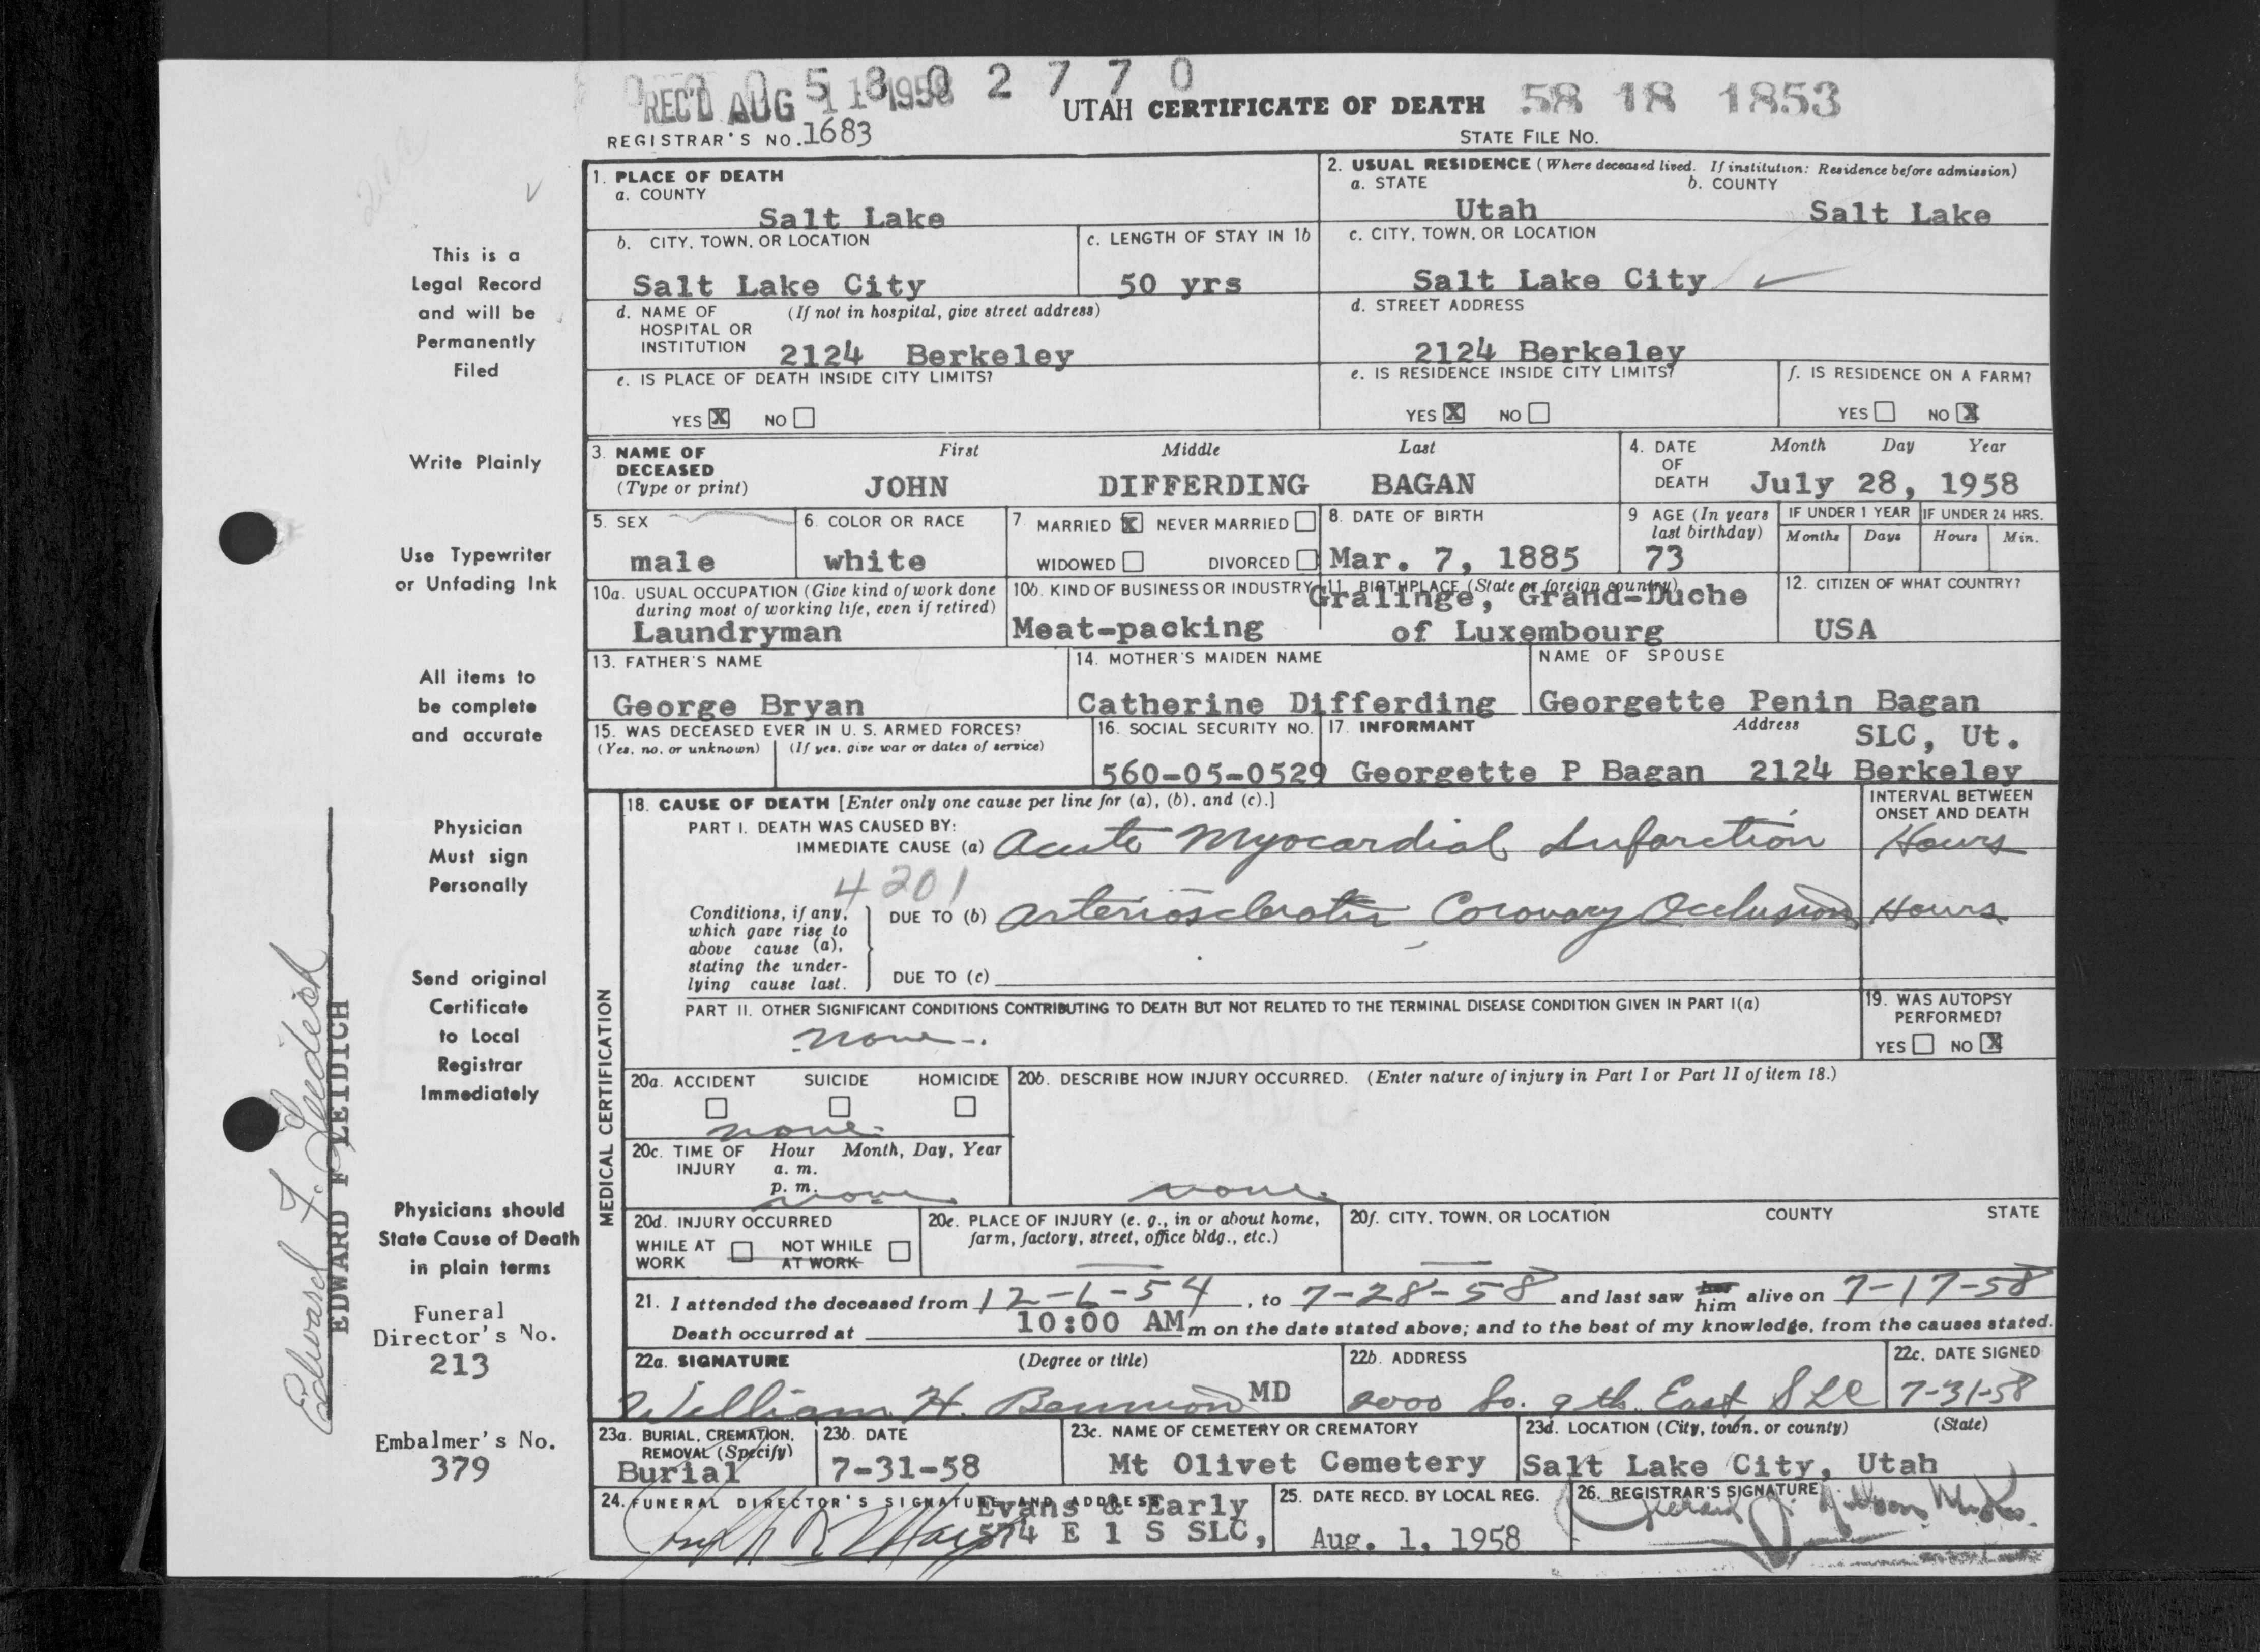 0 0 0 5 8 0 2 7 7 0
REC'D AUG 11 1958
UTAH CERTIFICATE OF DEATH 58 18 1853
REGISTRAR'S NO. 1683
STATE FILE NO.
This is a
Legal Record
and will be
Permanently
Filed
Write Plainly
Use Typewriter
or Unfading Ink
All items to
be complete
and accurate
Physician
Must sign
Personally
Send original
Certificate
to Local
Registrar
Immediately
Physicians should
State Cause of Death
in plain terms
Funeral
Director's No.
213
Embalmer's No.
379
Edward F. Leidich
EDWARD F LEIDICH
1. PLACE OF DEATH
a. COUNTY
Salt Lake
2. USUAL RESIDENCE (Where deceased lived. If institution: Residence before admission)
a. STATE b. COUNTY
Utah Salt Lake
b. CITY, TOWN, OR LOCATION
Salt Lake City
c. LENGTH OF STAY IN 1b
50 yrs
c. CITY, TOWN, OR LOCATION
Salt Lake City
d. NAME OF (If not in hospital, give street address)
HOSPITAL OR
INSTITUTION 2124 Berkeley
d. STREET ADDRESS
2124 Berkeley
e. IS PLACE OF DEATH INSIDE CITY LIMITS?
YES X NO
e. IS RESIDENCE INSIDE CITY LIMITS?
YES X NO
f. IS RESIDENCE ON A FARM?
YES NO X
3. NAME OF First Middle Last
DECEASED
(Type or print) JOHN DIFFERDING BAGAN
4. DATE Month Day Year
OF
DEATH July 28, 1958
5. SEX
male
6. COLOR OR RACE
white
7. MARRIED X NEVER MARRIED
WIDOWED DIVORCED
8. DATE OF BIRTH
Mar. 7, 1885
9 AGE (In years
last birthday)
73
IF UNDER 1 YEAR IF UNDER 24 HRS.
Months Days Hours Min.
10a. USUAL OCCUPATION (Give kind of work done
during most of working life, even if retired)
Laundryman
10b. KIND OF BUSINESS OR INDUSTRY
Meat-packing
11. BIRTHPLACE (State or foreign country)
Gralinge, Grand-Duche
of Luxembourg
12. CITIZEN OF WHAT COUNTRY?
USA
13. FATHER'S NAME
George Bryan
14. MOTHER'S MAIDEN NAME
Catherine Differding
NAME OF SPOUSE
Georgette Penin Bagan
15. WAS DECEASED EVER IN U. S. ARMED FORCES?
(Yes, no, or unknown) (If yes, give war or dates of service)
16. SOCIAL SECURITY NO.
560-05-0529
17. INFORMANT Address
SLC, Ut.
Georgette P Bagan 2124 Berkeley
MEDICAL CERTIFICATION
18. CAUSE OF DEATH [Enter only one cause per line for (a), (b), and (c).]
INTERVAL BETWEEN
ONSET AND DEATH
PART I. DEATH WAS CAUSED BY:
IMMEDIATE CAUSE (a) Acute Myocardial Infarction Hours
4201
Conditions, if any,
which gave rise to
above cause (a),
stating the under-
lying cause last.
DUE TO (b) Arteriosclerotic Coronary Occlusion Hours
DUE TO (c)
PART II. OTHER SIGNIFICANT CONDITIONS CONTRIBUTING TO DEATH BUT NOT RELATED TO THE TERMINAL DISEASE CONDITION GIVEN IN PART I(a)
none
19. WAS AUTOPSY
PERFORMED?
YES NO X
20a. ACCIDENT SUICIDE HOMICIDE
none
20b. DESCRIBE HOW INJURY OCCURRED. (Enter nature of injury in Part I or Part II of item 18.)
none
20c. TIME OF Hour Month, Day, Year
INJURY a. m.
p. m.
none
20d. INJURY OCCURRED
WHILE AT NOT WHILE
WORK AT WORK
20e. PLACE OF INJURY (e. g., in or about home,
farm, factory, street, office bldg., etc.)
20f. CITY, TOWN, OR LOCATION COUNTY STATE
21. I attended the deceased from 12-6-54, to 7-28-58 and last saw her him alive on 7-17-58
Death occurred at 10:00 AM m on the date stated above; and to the best of my knowledge, from the causes stated.
22a. SIGNATURE (Degree or title)
William H. Bennion MD
22b. ADDRESS
2000 So. 9th East SLC
22c. DATE SIGNED
7-31-58
23a. BURIAL, CREMATION,
REMOVAL (Specify)
Burial
23b. DATE
7-31-58
23c. NAME OF CEMETERY OR CREMATORY
Mt Olivet Cemetery
23d. LOCATION (City, town, or county) (State)
Salt Lake City, Utah
24. FUNERAL DIRECTOR'S SIGNATURE AND ADDRESS
Evans & Early
574 E 1 S SLC,
25. DATE RECD. BY LOCAL REG.
Aug. 1, 1958
26. REGISTRAR'S SIGNATURE